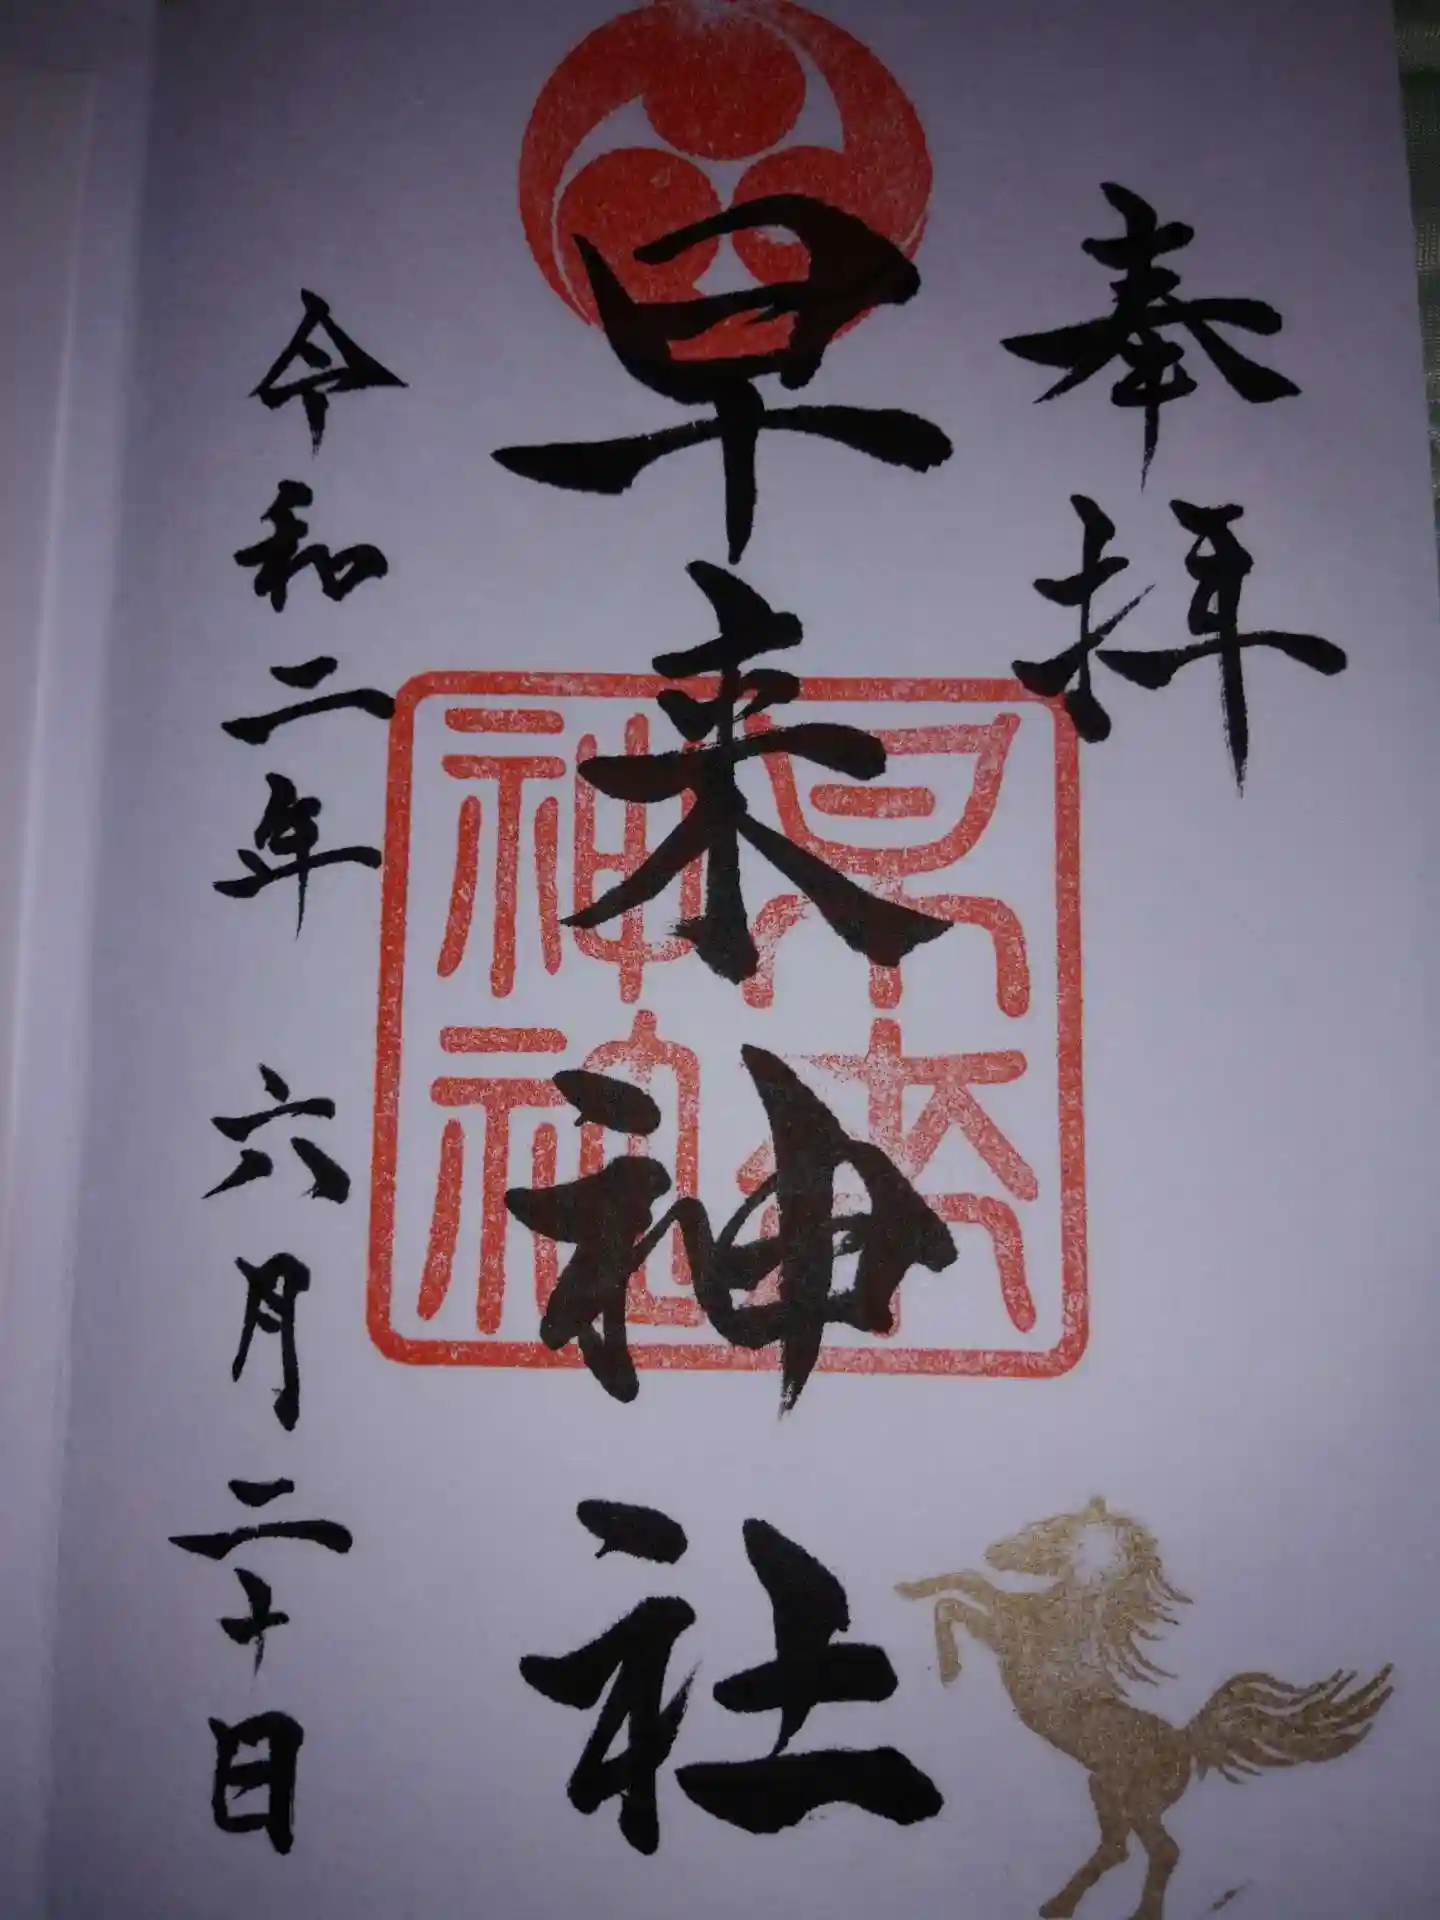 奉拝
早来神社
早来
神社
令和二年 六月二十日